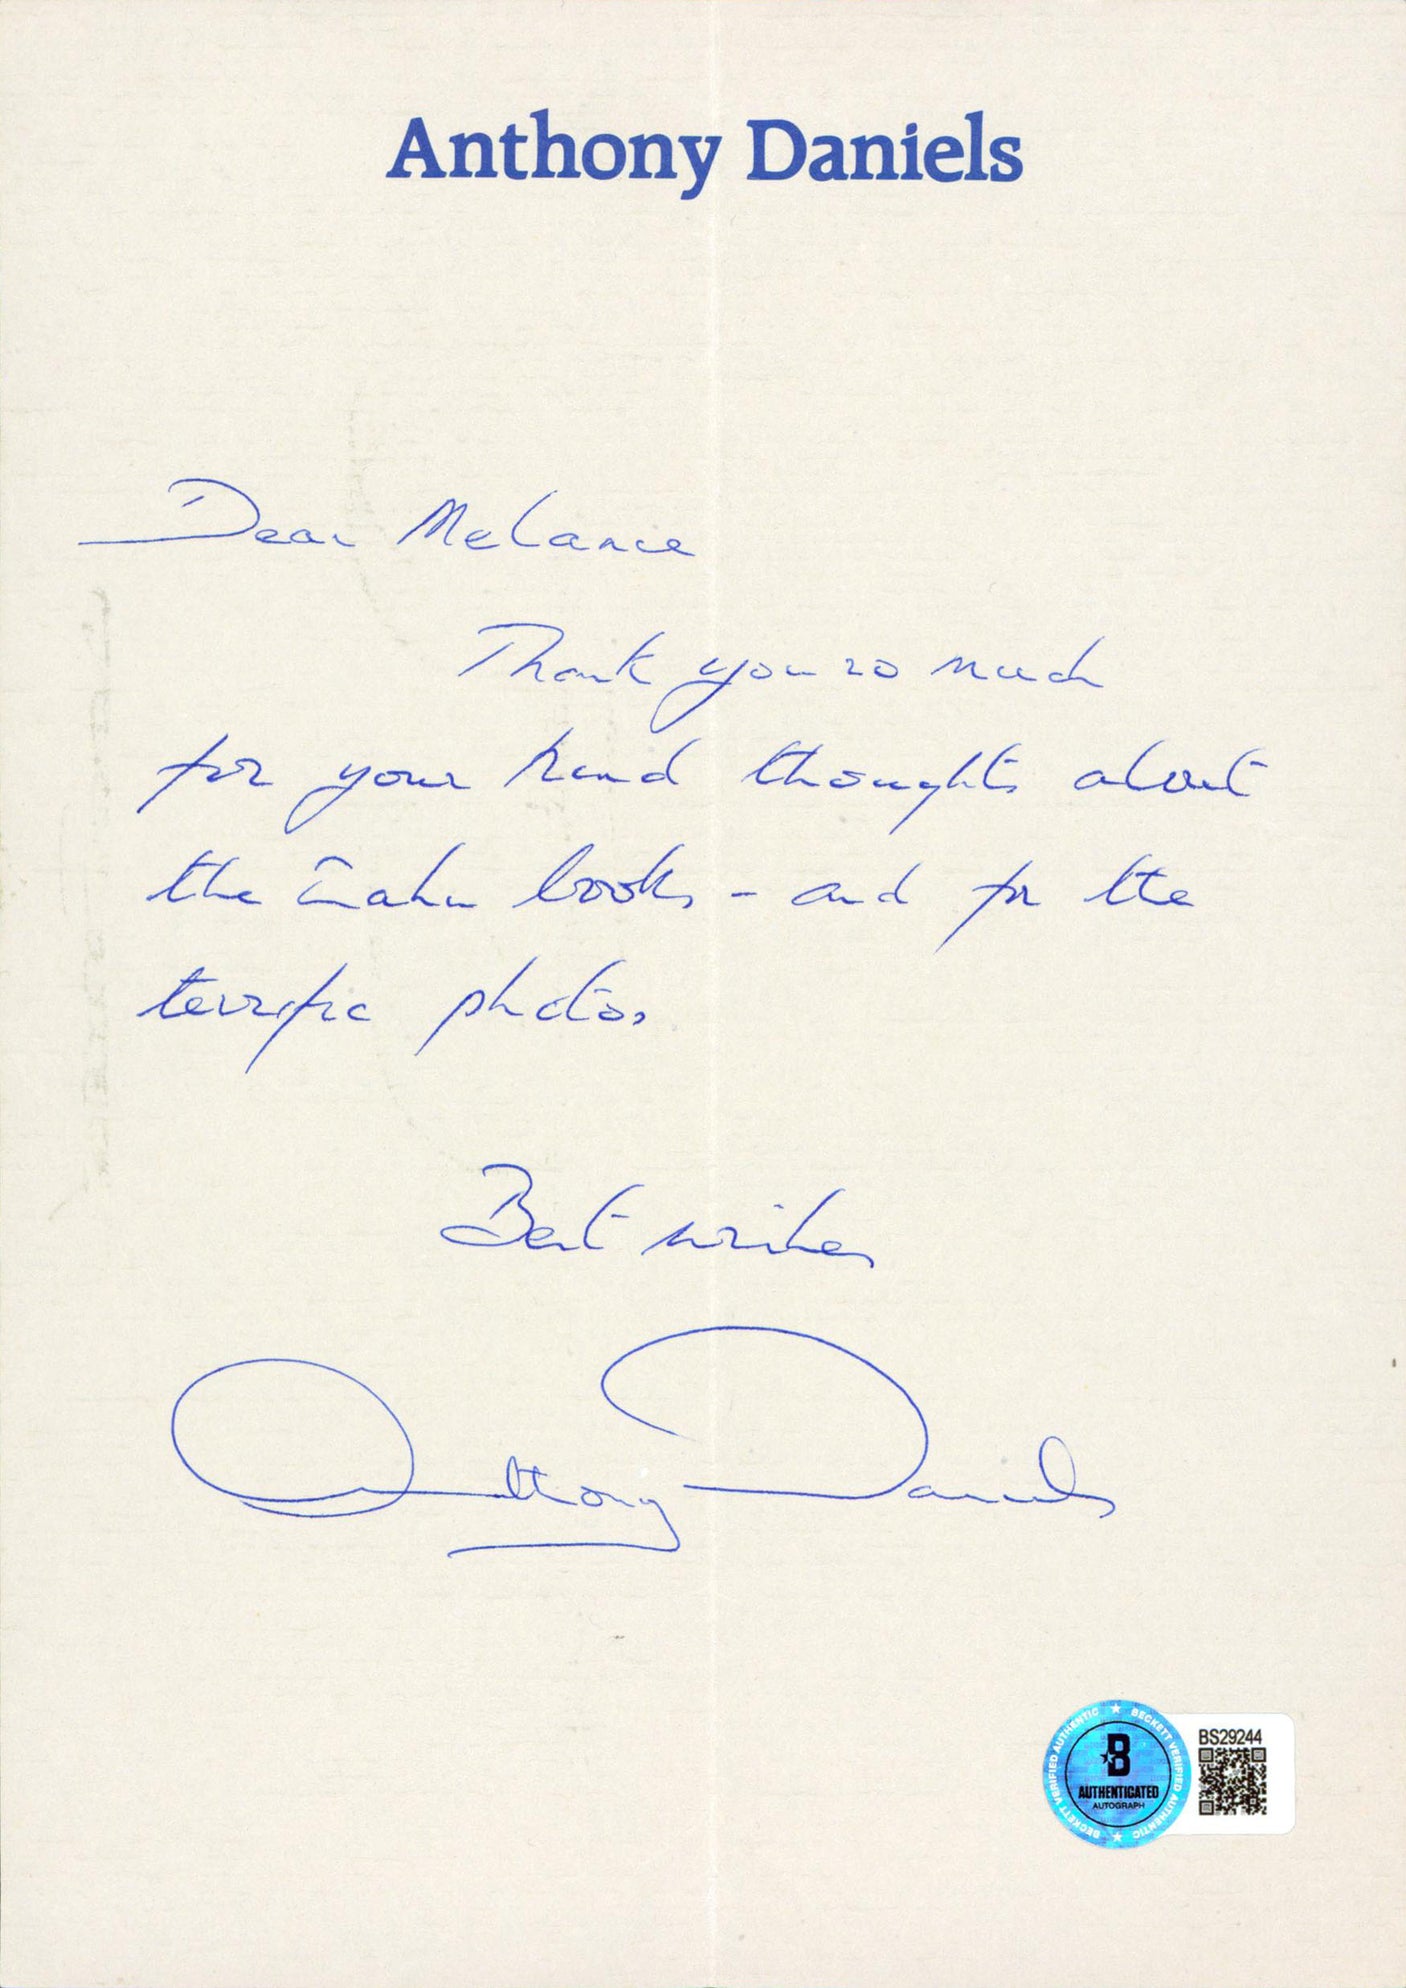 Anthony Daniels
Dear Melanie
Thank you so much
for your kind thoughts about
the books - and for the
terrific photos.
Best wishes
Anthony Daniels
BECKETT VERIFIED AUTHENTIC ★ BECKETT VERIFIED AUTHENTIC ★
B
AUTHENTICATED
AUTOGRAPH
BS29244